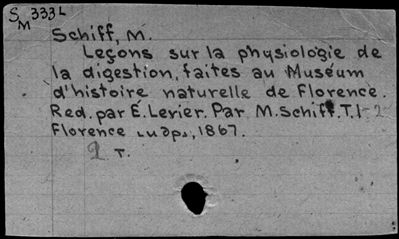 S 333 L
M
Schiff, M.
Leçons sur la physiologie de
la digestion, faites au Muséum
d'histoire naturelle de Florence.
Red. par E. Levier. Par M. Schiff. T. 1-2
Florence 1867.
2 T.